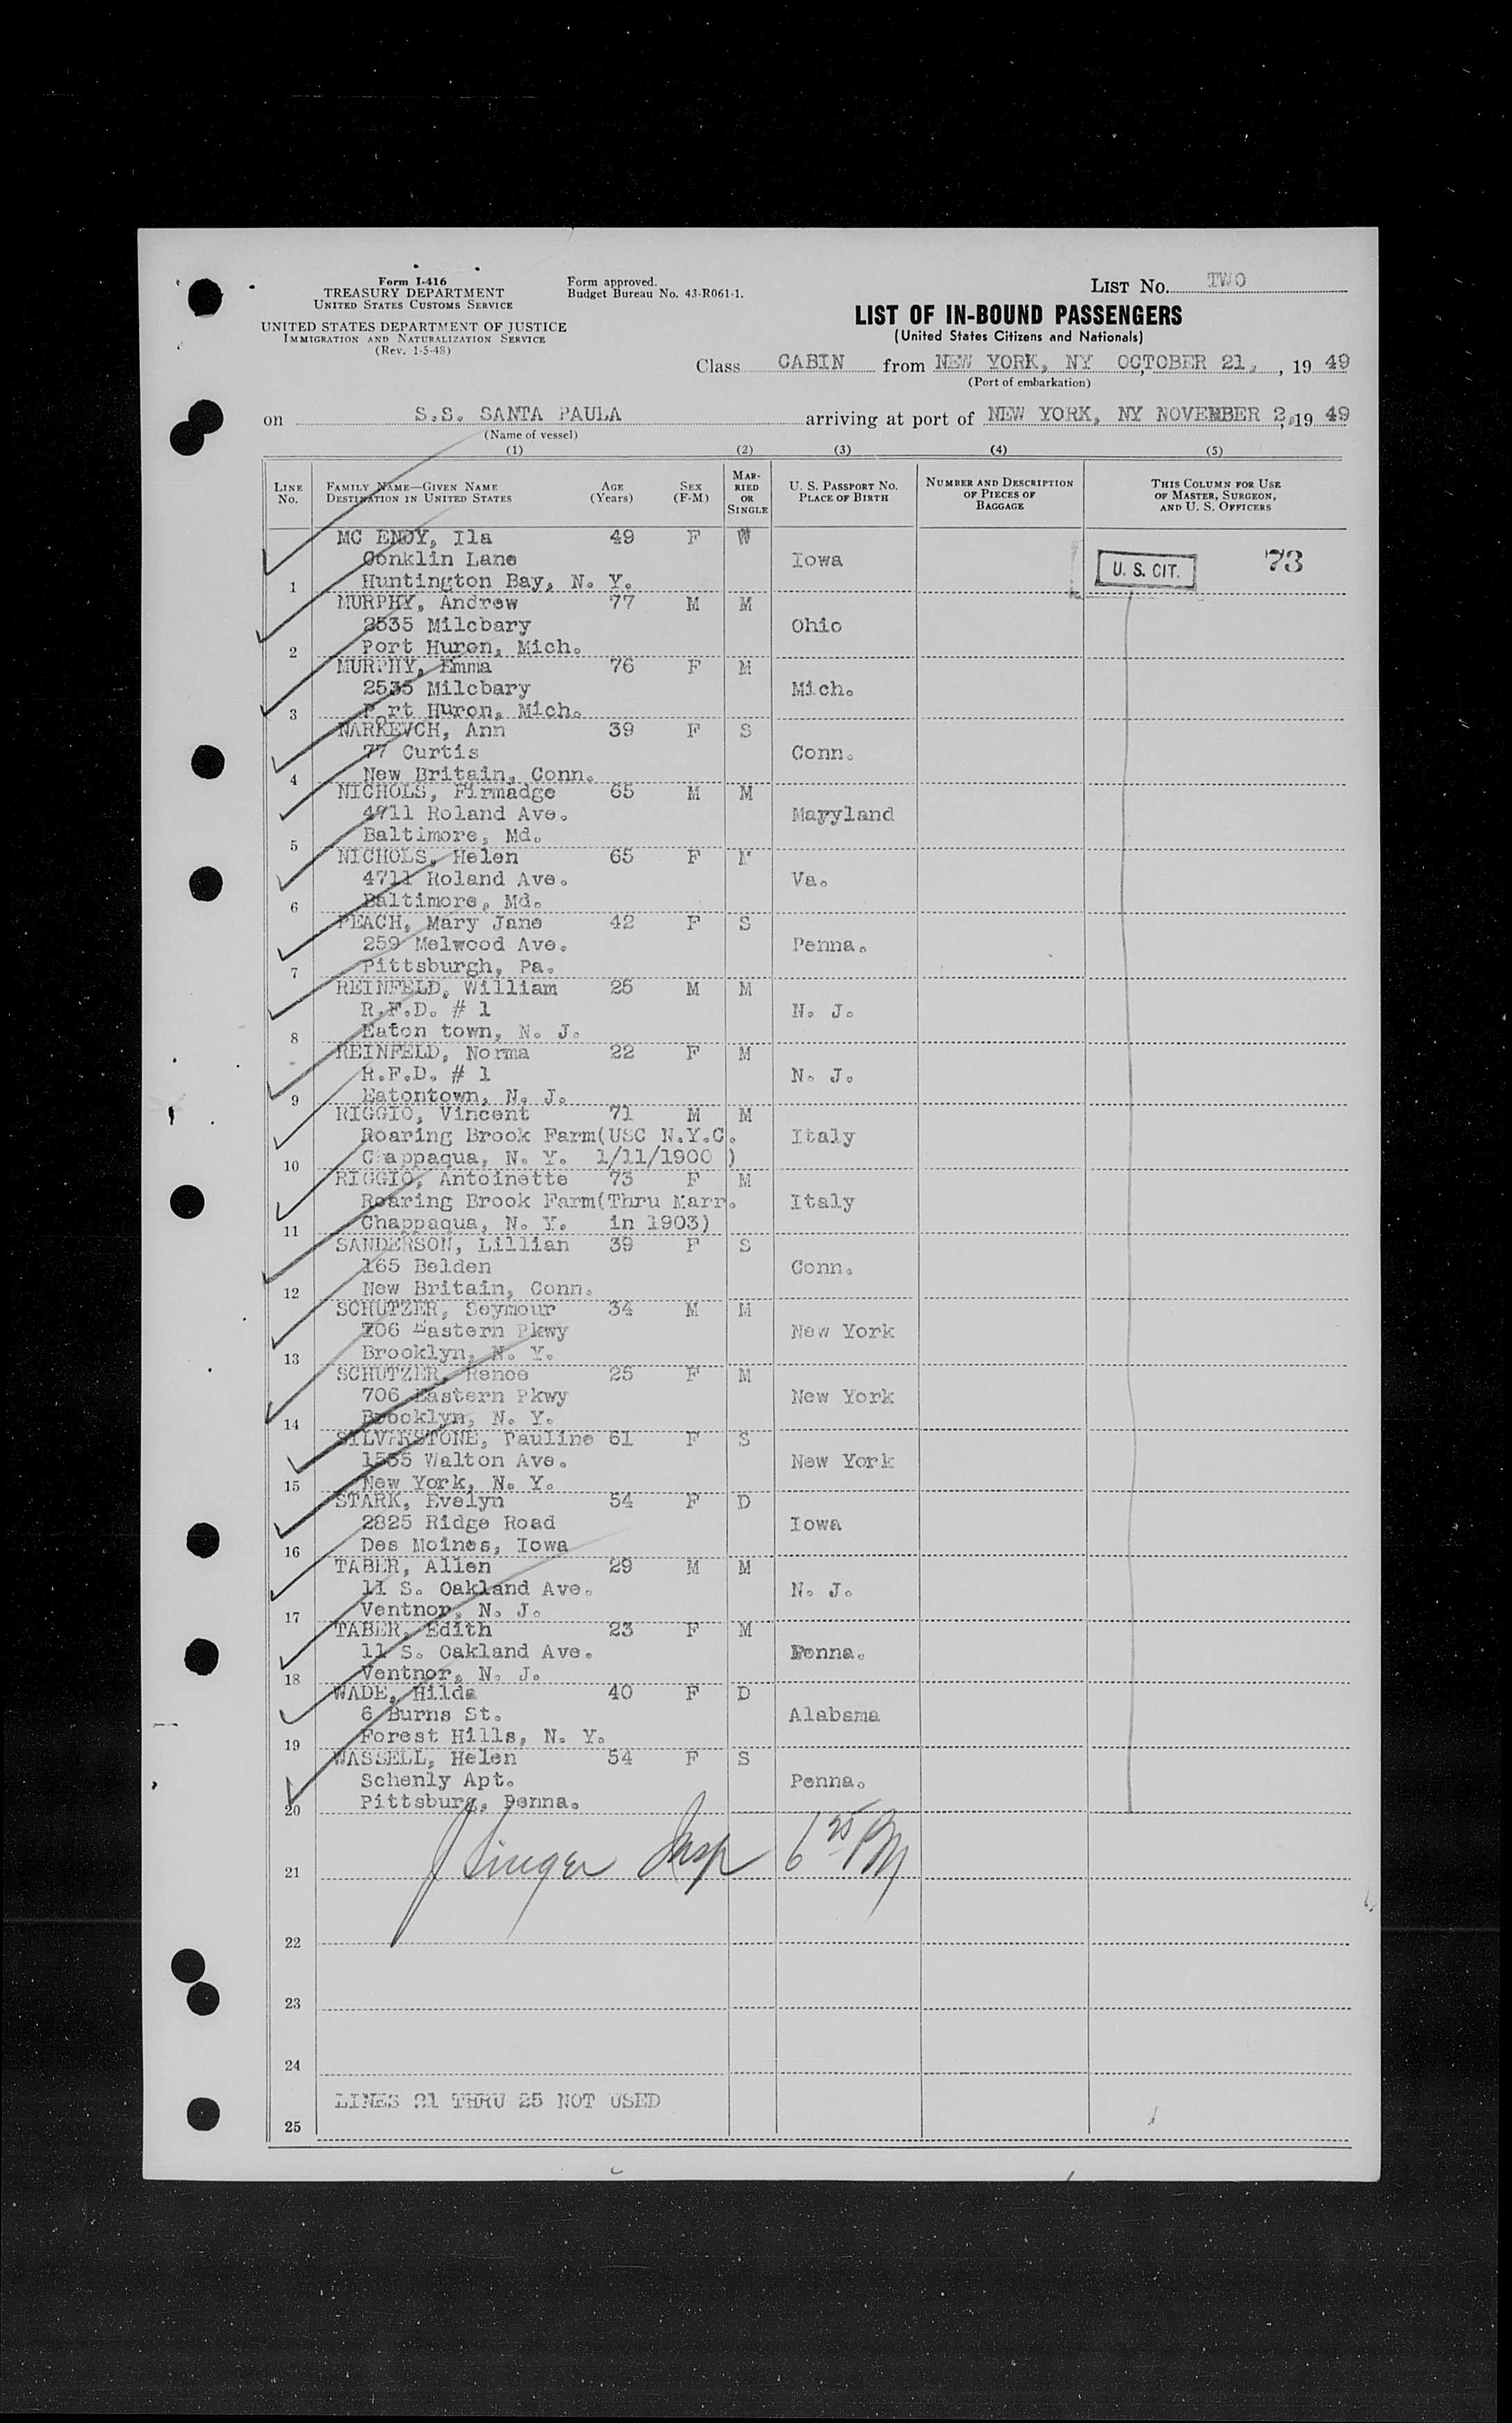 Form I-416
TREASURY DEPARTMENT
UNITED STATES CUSTOMS SERVICE
UNITED STATES DEPARTMENT OF JUSTICE
IMMIGRATION AND NATURALIZATION SERVICE
(Rev. 1-5-48)
Form approved.
Budget Bureau No. 43-R061-1.
LIST NO. TWO
LIST OF IN-BOUND PASSENGERS
(United States Citizens and Nationals)
Class CABIN from NEW YORK, NY OCTOBER 21, , 19 49
(Port of embarkation)
on S.S. SANTA PAULA arriving at port of NEW YORK, NY NOVEMBER 2, 19 49
(Name of vessel)
(1) (2) (3) (4) (5)
LINE NO. FAMILY NAME—GIVEN NAME DESTINATION IN UNITED STATES AGE (Years) SEX (F-M) MARRIED OR SINGLE U. S. PASSPORT NO. PLACE OF BIRTH NUMBER AND DESCRIPTION OF PIECES OF BAGGAGE THIS COLUMN FOR USE OF MASTER, SURGEON, AND U. S. OFFICERS
MC ENDY, Ila 49 F W
Conklin Lane Iowa U. S. CIT. 73
1 Huntington Bay, N. Y.
MURPHY, Andrew 77 M M
2535 Milcbary Ohio
2 Port Huron, Mich.
MURPHY, Emma 76 F M
2535 Milcbary Mich.
3 Port Huron, Mich.
NARKEVCH, Ann 39 F S
77 Curtis Conn.
4 New Britain, Conn.
NICHOLS, Firmadge 65 M M
4711 Roland Ave. Maryland
5 Baltimore, Md.
NICHOLS, Helen 65 F M
4711 Roland Ave. Va.
6 Baltimore, Md.
PEACH, Mary Jane 42 F S
259 Melwood Ave. Penna.
7 Pittsburgh, Pa.
REINFELD, William 25 M M
R.F.D. # 1 N. J.
8 Eaton town, N. J.
REINFELD, Norma 22 F M
R.F.D. # 1 N. J.
9 Eatontown, N. J.
RIGGIO, Vincent 71 M M
Roaring Brook Farm(USC N.Y.C. Italy
10 Chappaqua, N. Y. 1/11/1900 )
RIGGIO, Antoinette 73 F M
Roaring Brook Farm(Thru Marr. Italy
11 Chappaqua, N. Y. in 1903)
SANDERSON, Lillian 39 F S
165 Belden Conn.
12 New Britain, Conn.
SCHUTZER, Seymour 34 M M
706 Eastern Pkwy New York
13 Brooklyn, N. Y.
SCHUTZER, Renee 25 F M
706 Eastern Pkwy New York
14 Brooklyn, N. Y.
SILVERSTONE, Pauline 61 F S
1535 Walton Ave. New York
15 New York, N. Y.
STARK, Evelyn 54 F D
2825 Ridge Road Iowa
16 Des Moines, Iowa
TABER, Allen 29 M M
11 S. Oakland Ave. N. J.
17 Ventnor, N. J.
TABER, Edith 23 F M
11 S. Oakland Ave. Penna.
18 Ventnor, N. J.
WADE, Hilda 40 F D
6 Burns St. Alabama
19 Forest Hills, N. Y.
WASSELL, Helen 54 F S
Schenly Apt. Penna.
20 Pittsburg, Penna.
21 J Singer Insp 6 25 PM
22
23
24
LINES 21 THRU 25 NOT USED
25